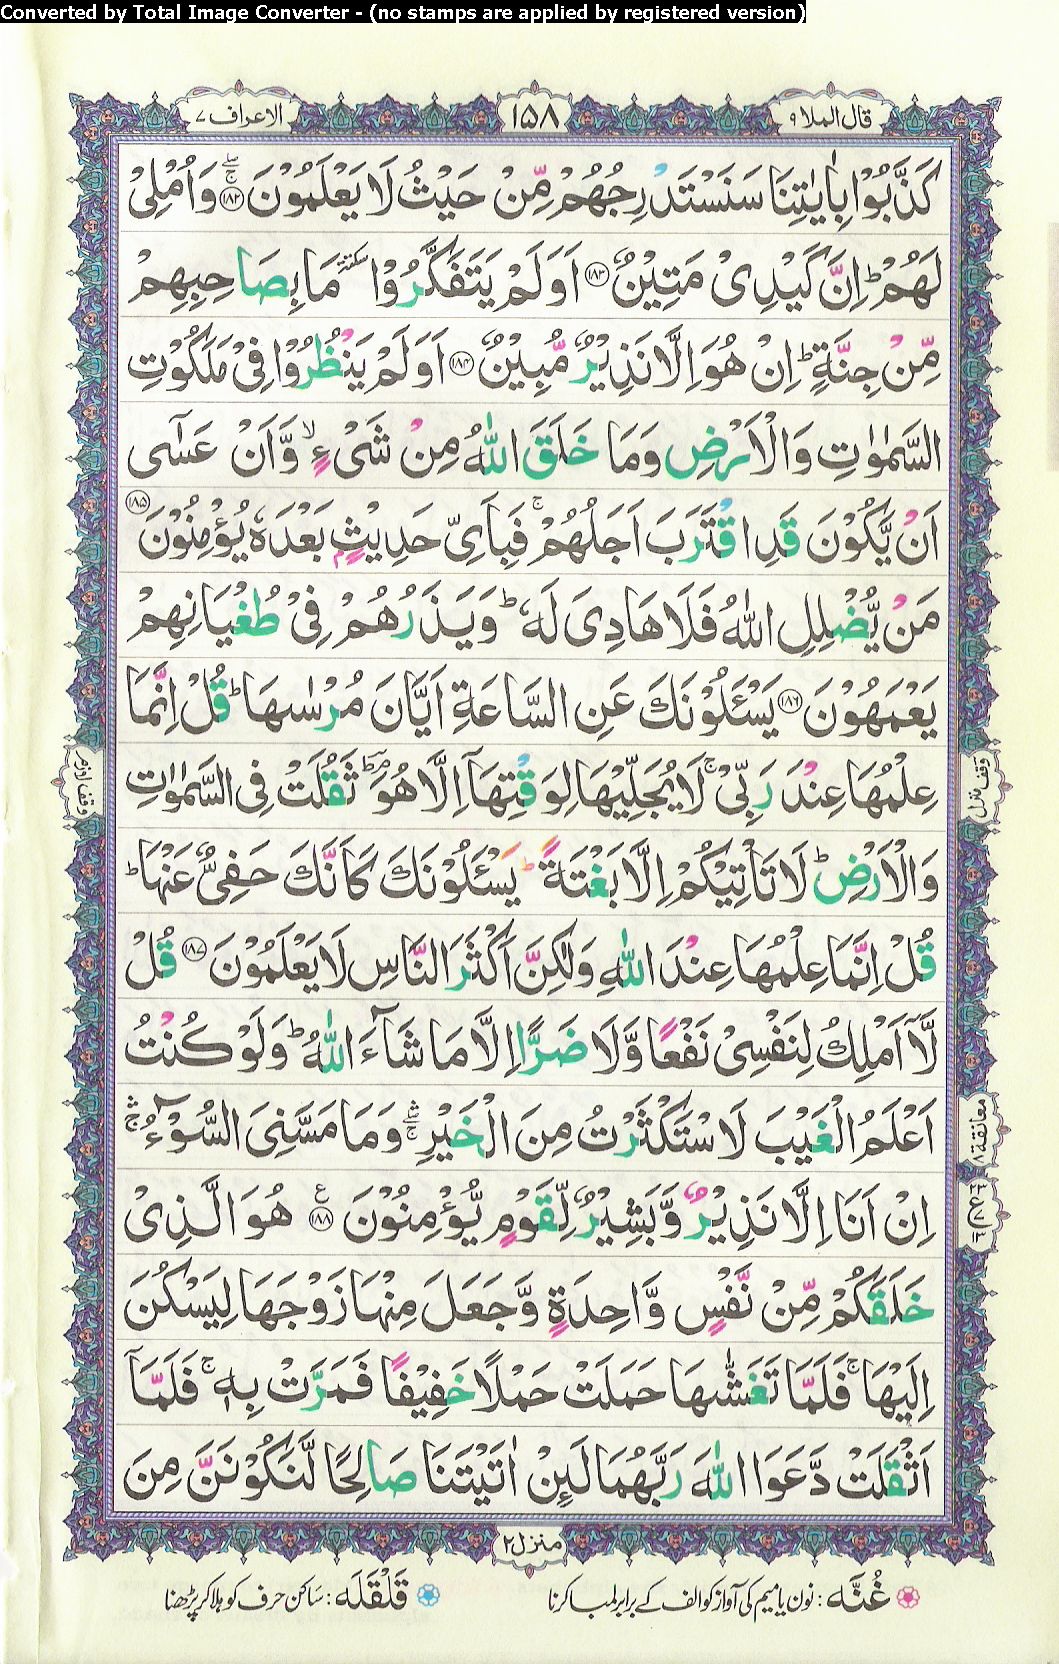 Converted by Total Image Converter - (no stamps are applied by registered version)
قال الملا ۹
۱۵۸
الاعراف ۷
كَذَّبُوْا بِاٰيٰتِنَا سَنَسْتَدْرِجُهُمْ مِّنْ حَيْثُ لَا يَعْلَمُوْنَ ۚۖ ۝۱۸۲ وَ اُمْلِیْ
لَهُمْ ؕ اِنَّ كَيْدِیْ مَتِيْنٌ ۝۱۸۳ اَوَ لَمْ يَتَفَكَّرُوْا ٚ مَا بِصَاحِبِهِمْ
مِّنْ جِنَّةٍ ؕ اِنْ هُوَ اِلَّا نَذِيْرٌ مُّبِيْنٌ ۝۱۸۴ اَوَ لَمْ يَنْظُرُوْا فِیْ مَلَكُوْتِ
السَّمٰوٰتِ وَ الْاَرْضِ وَ مَا خَلَقَ اللّٰهُ مِنْ شَیْءٍ ۙ وَّ اَنْ عَسٰۤی
اَنْ يَّكُوْنَ قَدِ اقْتَرَبَ اَجَلُهُمْ ۚ فَبِاَیِّ حَدِيْثٍۭ بَعْدَهٗ يُؤْمِنُوْنَ ۝۱۸۵
مَنْ يُّضْلِلِ اللّٰهُ فَلَا هَادِیَ لَهٗ ؕ وَ يَذَرُهُمْ فِیْ طُغْيَانِهِمْ
يَعْمَهُوْنَ ۝۱۸۶ يَسْـَٔلُوْنَكَ عَنِ السَّاعَةِ اَيَّانَ مُرْسٰىهَا ؕ قُلْ اِنَّمَا
عِلْمُهَا عِنْدَ رَبِّیْ ۚ لَا يُجَلِّيْهَا لِوَقْتِهَاۤ اِلَّا هُوَ ؔؕ ثَقُلَتْ فِی السَّمٰوٰتِ
وَ الْاَرْضِ ؕ لَا تَاْتِيْكُمْ اِلَّا بَغْتَةً ؕ يَسْـَٔلُوْنَكَ كَاَنَّكَ حَفِیٌّ عَنْهَا ؕ
قُلْ اِنَّمَا عِلْمُهَا عِنْدَ اللّٰهِ وَ لٰكِنَّ اَكْثَرَ النَّاسِ لَا يَعْلَمُوْنَ ۝۱۸۷ قُلْ
لَّاۤ اَمْلِكُ لِنَفْسِیْ نَفْعًا وَّ لَا ضَرًّا اِلَّا مَا شَآءَ اللّٰهُ ؕ وَ لَوْ كُنْتُ
اَعْلَمُ الْغَيْبَ لَا سْتَكْثَرْتُ مِنَ الْخَيْرِ ۛۚ وَ مَا مَسَّنِیَ السُّوْٓءُ ۛۚ
اِنْ اَنَا اِلَّا نَذِيْرٌ وَّ بَشِيْرٌ لِّقَوْمٍ يُّؤْمِنُوْنَ ۝۱۸۸ هُوَ الَّذِیْ
خَلَقَكُمْ مِّنْ نَّفْسٍ وَّاحِدَةٍ وَّ جَعَلَ مِنْهَا زَوْجَهَا لِيَسْكُنَ
اِلَيْهَا ۚ فَلَمَّا تَغَشّٰىهَا حَمَلَتْ حَمْلًا خَفِيْفًا فَمَرَّتْ بِهٖ ۚ فَلَمَّاۤ
اَثْقَلَتْ دَّعَوَا اللّٰهَ رَبَّهُمَا لَئِنْ اٰتَيْتَنَا صَالِحًا لَّنَكُوْنَنَّ مِنَ
وقف منزل
معانقة ۸
منزل ۲
غُنَّه: نون یا میم کی آواز کو الف کے برابر لمبا کرنا
قَلْقَلَه: ساکن حرف کو ہلا کر پڑھنا